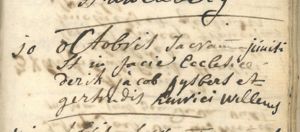 10 octobris sacram: juncti
st in facie Ecclesiæ
derik jacob gysbers et
gertrudis henrici willems